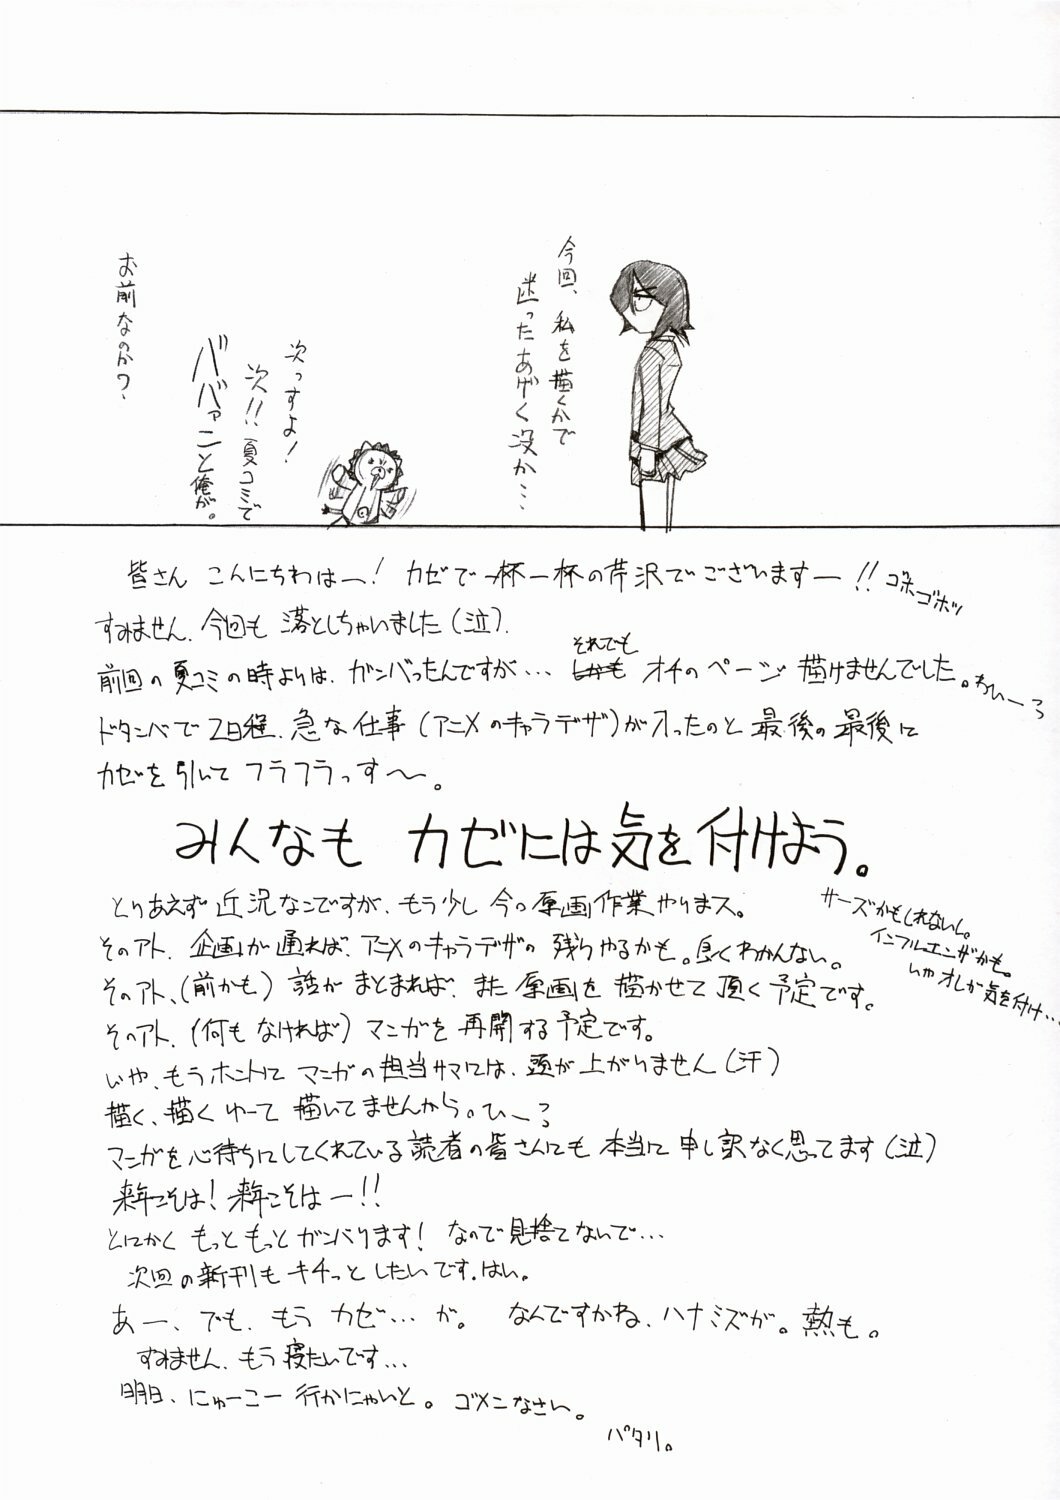 今回、私を描くかで
迷ったあげく没か…
次っすよ!
次!!夏コミで
ババァニと俺が。
お前なのか?
皆さん こんにちわはー! カゼで一杯一杯の芹沢でございますー!!
ゴホゴホッ
すみません、今回も 落としちゃいました(泣)。
前回の夏コミの時よりは、ガンバったんですが… それでも オチのページ 描けませんでした。
ドタンバで 2日程、急な仕事(アニメのキャラデザ)が入ったのと 最後の最後に
カゼを引いて フラフラっす〜。
みんなも カゼには気を付けよう。
サーズかもしれないし。
インフルエンザかも。
いや オレが気を付け…
とりあえず 近況なンですが、もう少し 今の原画作業やりまス。
そのアト、企画が通れば、アニメのキャラデザの 残りやるかも。良くわかんない。
そのアト、(前かも)話がまとまれば、また 原画を 描かせて 頂く予定です。
そのアト、(何もなければ)マンガを再開する予定です。
いや、もうホントに マンガの担当サマには、頭が上がりません(汗)
描く、描く ゆーて 描いてませんから。ひーっ
マンガを心待ちにしてくれている読者の皆さんにも 本当に 申し訳なく思ってます(泣)
来年こそは!来年こそはー!!
とにかく もっともっとガンバります! なので見捨てないで…
次回の新刊もキチっとしたいです。はい。
あー、でも、もう カゼ…が。 なんですかね、ハナミズが。熱も。
すみません、もう寝たいです…
明日、にゅーこー 行かにゃいと。ゴメンなさい。
パタリ。